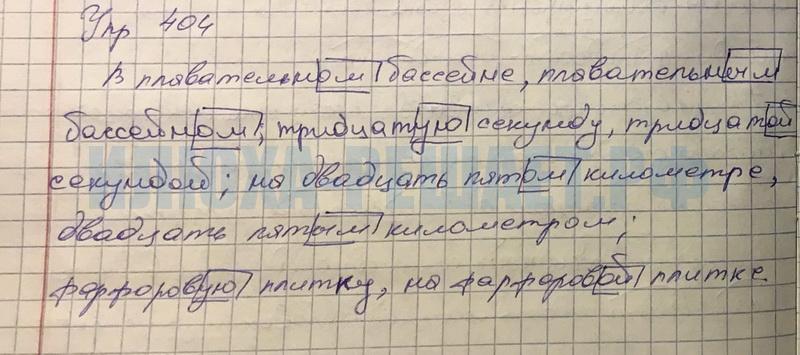 Упр 404
В плавательном бассейне, плавательным
бассейном; тридцатую секунду, тридцатой
секундой; на двадцать пятом километре,
двадцать пятым километром;
фарфоровую плитку, на фарфоровой плитке
ИЛЮХА-РЕШАЕТ.РФ